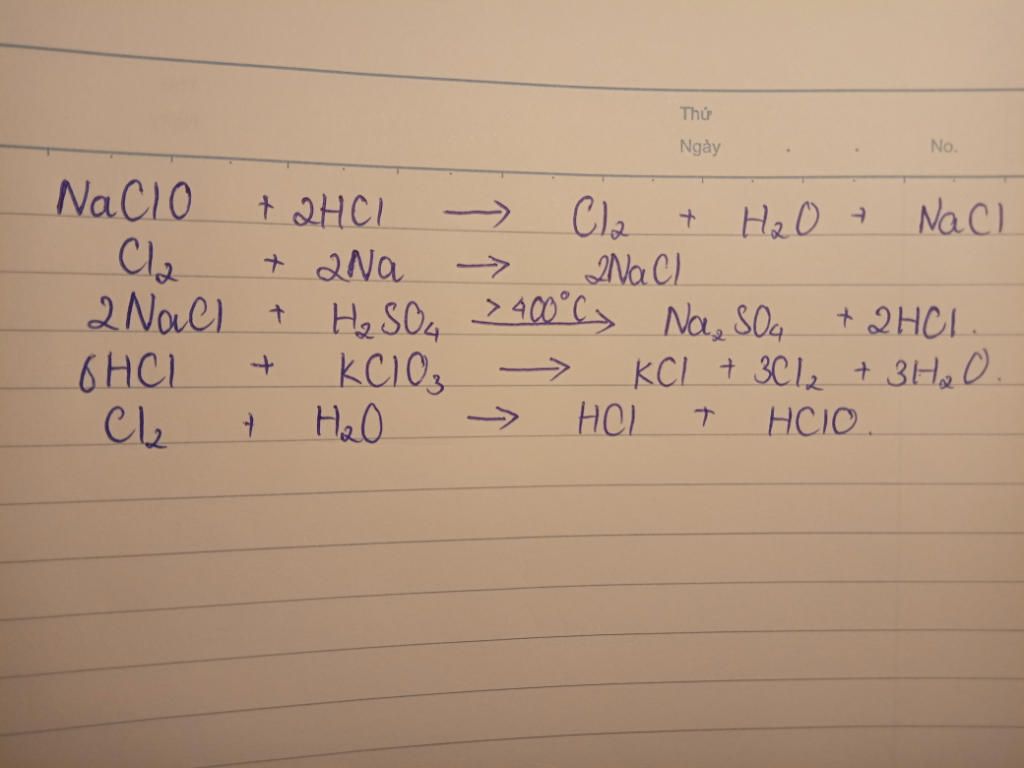 Thứ
Ngày . . No.
NaClO + 2HCl → Cl₂ + H₂O + NaCl
Cl₂ + 2Na → 2NaCl
2NaCl + H₂SO₄ >400°C → Na₂SO₄ + 2HCl.
6HCl + KClO₃ → KCl + 3Cl₂ + 3H₂O.
Cl₂ + H₂O → HCl + HClO.